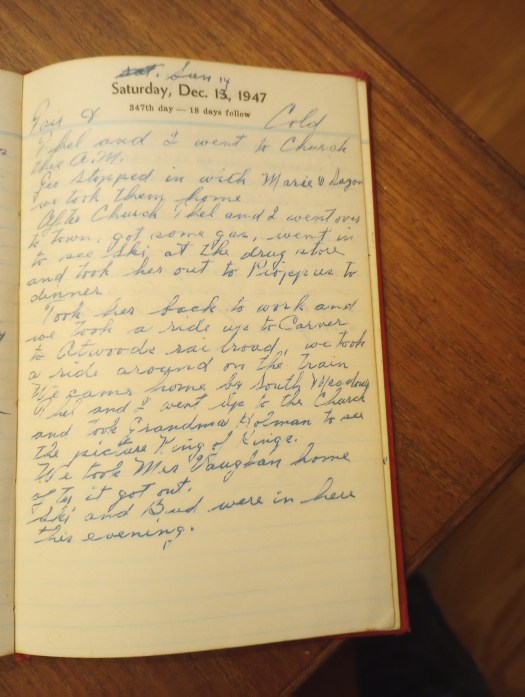 Sat. Sun 14
Saturday, Dec. 13, 1947
347th day — 18 days follow
Fair & Cold
Thel and I went to Church
this A.M.
Geo stopped in with Marie &
we took them home
After Church Thel and I went over
to town, got some gas, went in
to see Ski at the drug store
and took her out to to
dinner.
Took her back to work and
we took a ride up to Carver
to Atwoods railroad, we took
a ride around on the train
We came home by South Meadows
Thel and I went up to the Church
and took Grandma Holman to see
the picture King of Kings.
We took Mrs Vaughan home
after it got out.
Ski and Bud were in here
this evening.